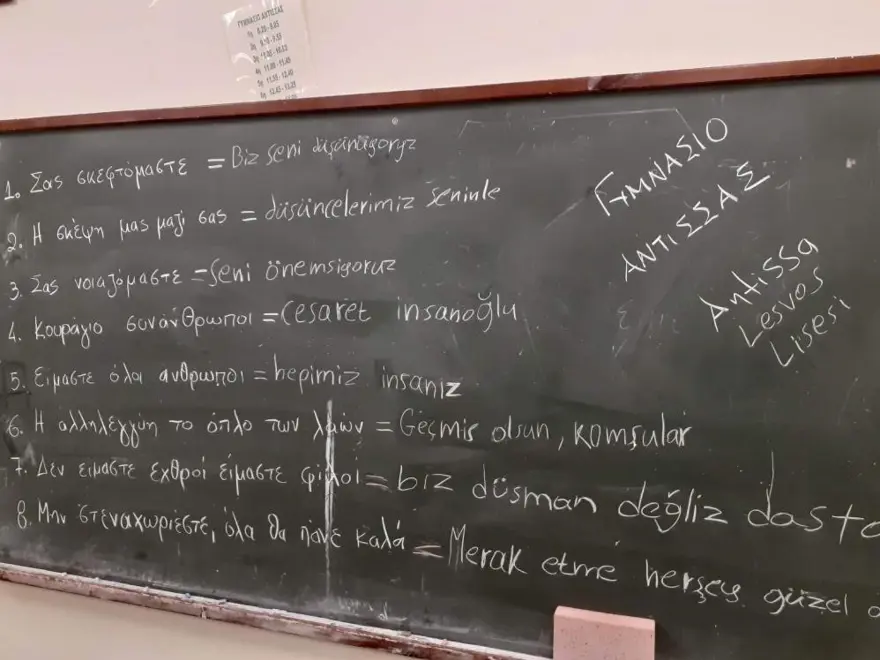 ΓΥΜΝΑΣΙΟ ΑΝΤΙΣΣΑΣ
1. Σας σκεφτόμαστε = Biz seni düşünügoryz
2. Η σκέψη μας μαζί σας = düşüncelerimiz seninle
3. Σας νοιαζόμαστε = seni önemsigoruz
4. Κουράγιο συνάνθρωποι = Cesaret insanoğlu
5. Είμαστε όλοι ανθρωποι = hepimiz insanız
6. Η αλληλεγγύη το όπλο των λαών = Geçmis olsun, Komşular
7. Δεν ειμαστε εχθροί είμαστε φίλοι = biz düsman değliz dosto
8. Μην στεναχωριέστε, όλα θα πάνε καλά = Merak etme herşey güzel
ΓΥΜΝΑΣΙΟ
ΑΝΤΙΣΣΑΣ
Antissa
Lesvos
Lisesi